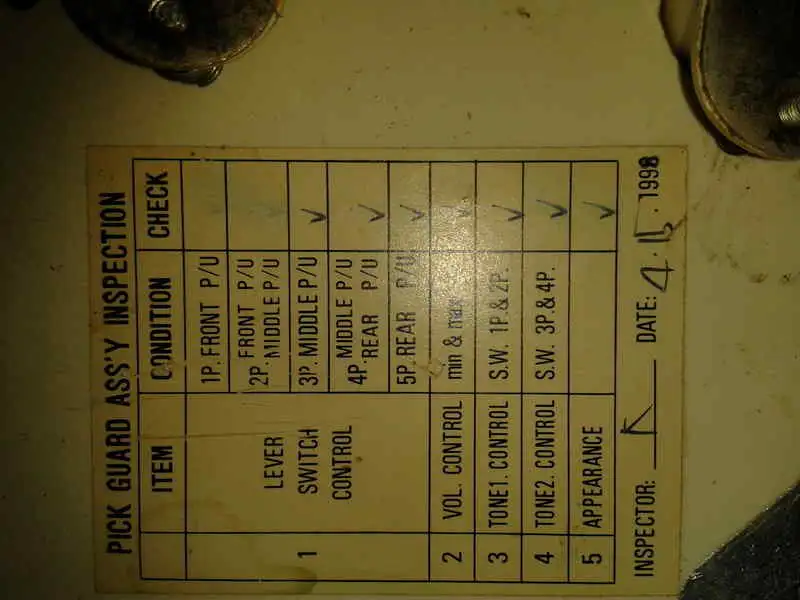 PICK GUARD ASS'Y INSPECTION
ITEM CONDITION CHECK
1 LEVER SWITCH CONTROL
1P. FRONT P/U
2P. FRONT P/U MIDDLE P/U
3P. MIDDLE P/U ✓
4P. MIDDLE P/U REAR P/U ✓
5P. REAR P/U ✓
2 VOL. CONTROL min & max ✓
3 TONE1. CONTROL S.W. 1P. & 2P. ✓
4 TONE2. CONTROL S.W. 3P. & 4P. ✓
5 APPEARANCE ✓
INSPECTOR: DATE: 4. . 1998